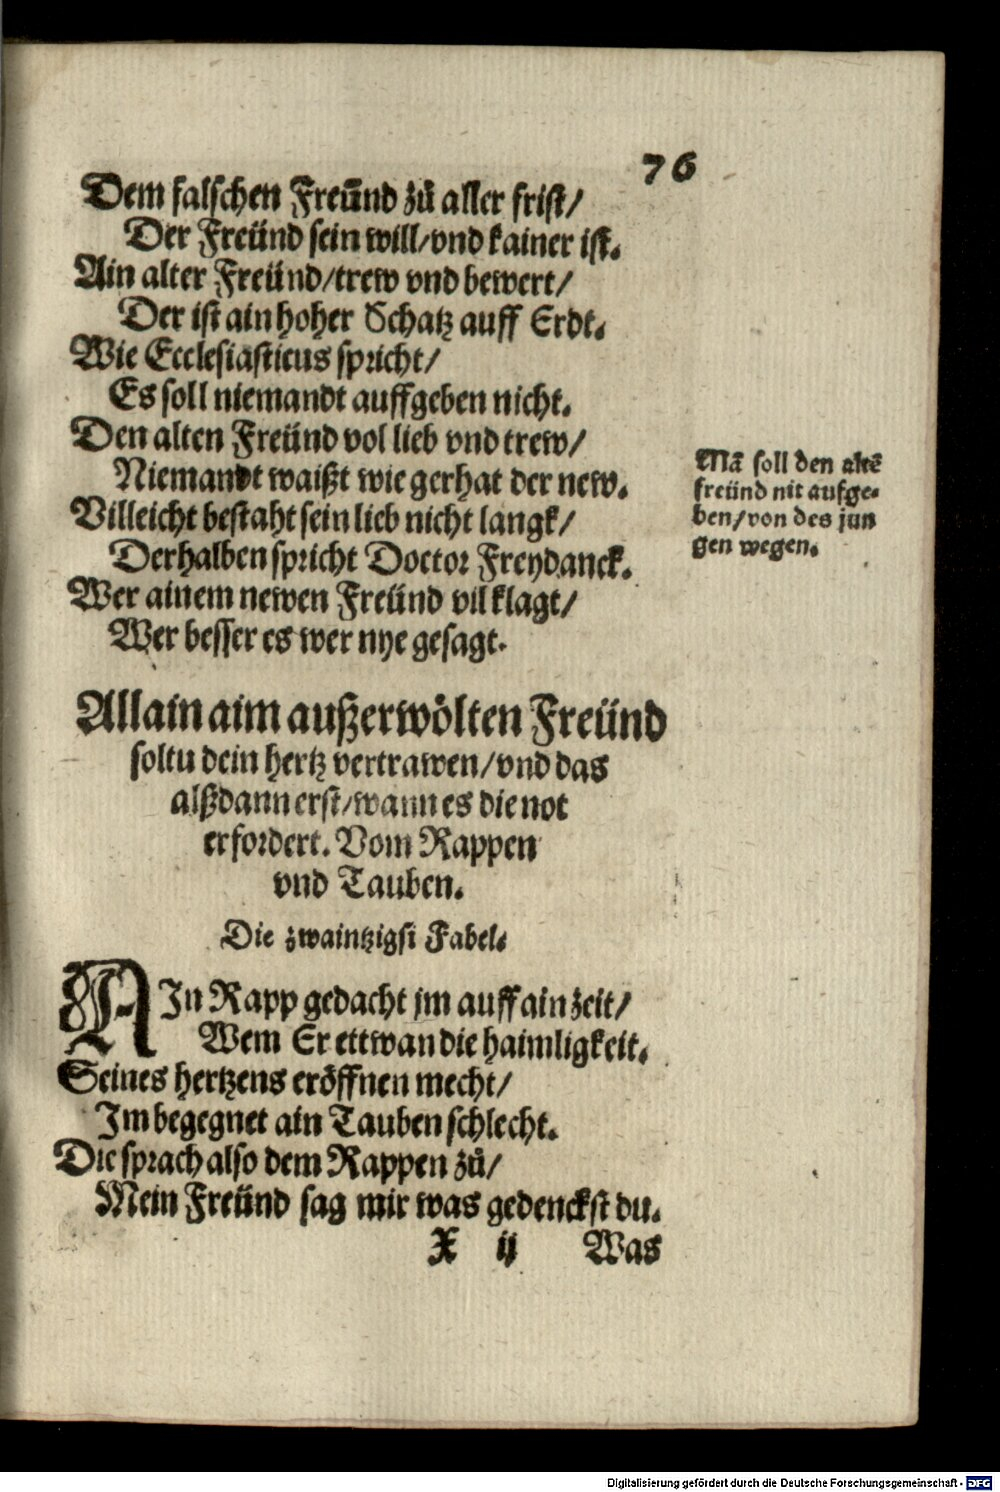 76
Dem falschen Freünd zů aller frist/
Der Freünd sein will/vnd kainer ist.
Ain alter Freünd/trew vnd bewert/
Der ist ain hoher Schatz auff Erdt.
Wie Ecclesiasticus spricht/
Es soll niemandt auffgeben nicht.
Den alten Freünd vol lieb vnd trew/
Niemandt waißt wie gerhat der new.
Villeicht bestaht sein lieb nicht langk/
Derhalben spricht Doctor Freydanck.
Wer ainem newen Freünd vil klagt/
Wer besser es wer nye gesagt.
Mā soll den altē
freünd nit aufge-
ben/von des jun
gen wegen.
Allain aim außerwölten Freünd
soltu dein hertz vertrawen/vnd das
alßdann erst/wann es die not
erfordert. Vom Rappen
vnd Tauben.
Die zwaintzigst Fabel.
AIn Rapp gedacht jm auff ain zeit/
Wem Er ettwan die haimligkeit.
Seines hertzens eröffnen mecht/
Im begegnet ain Tauben schlecht.
Die sprach also dem Rappen zů/
Mein Freünd sag mir was gedenckst du.
X ij Was
Digitalisierung gefördert durch die Deutsche Forschungsgemeinschaft - DFG